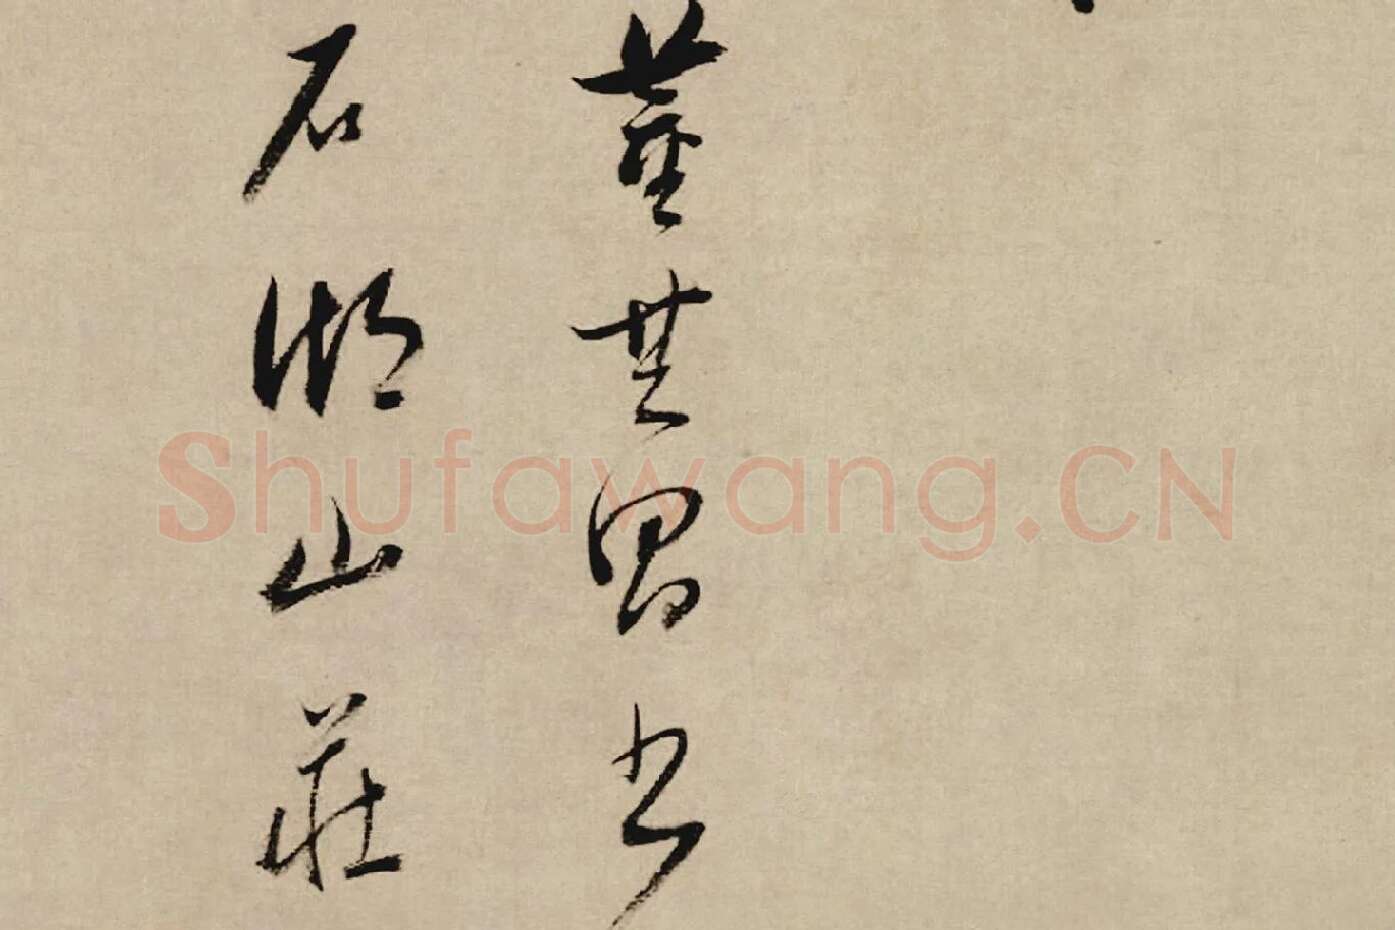 董其昌書
石湖山莊
Shufawang.CN